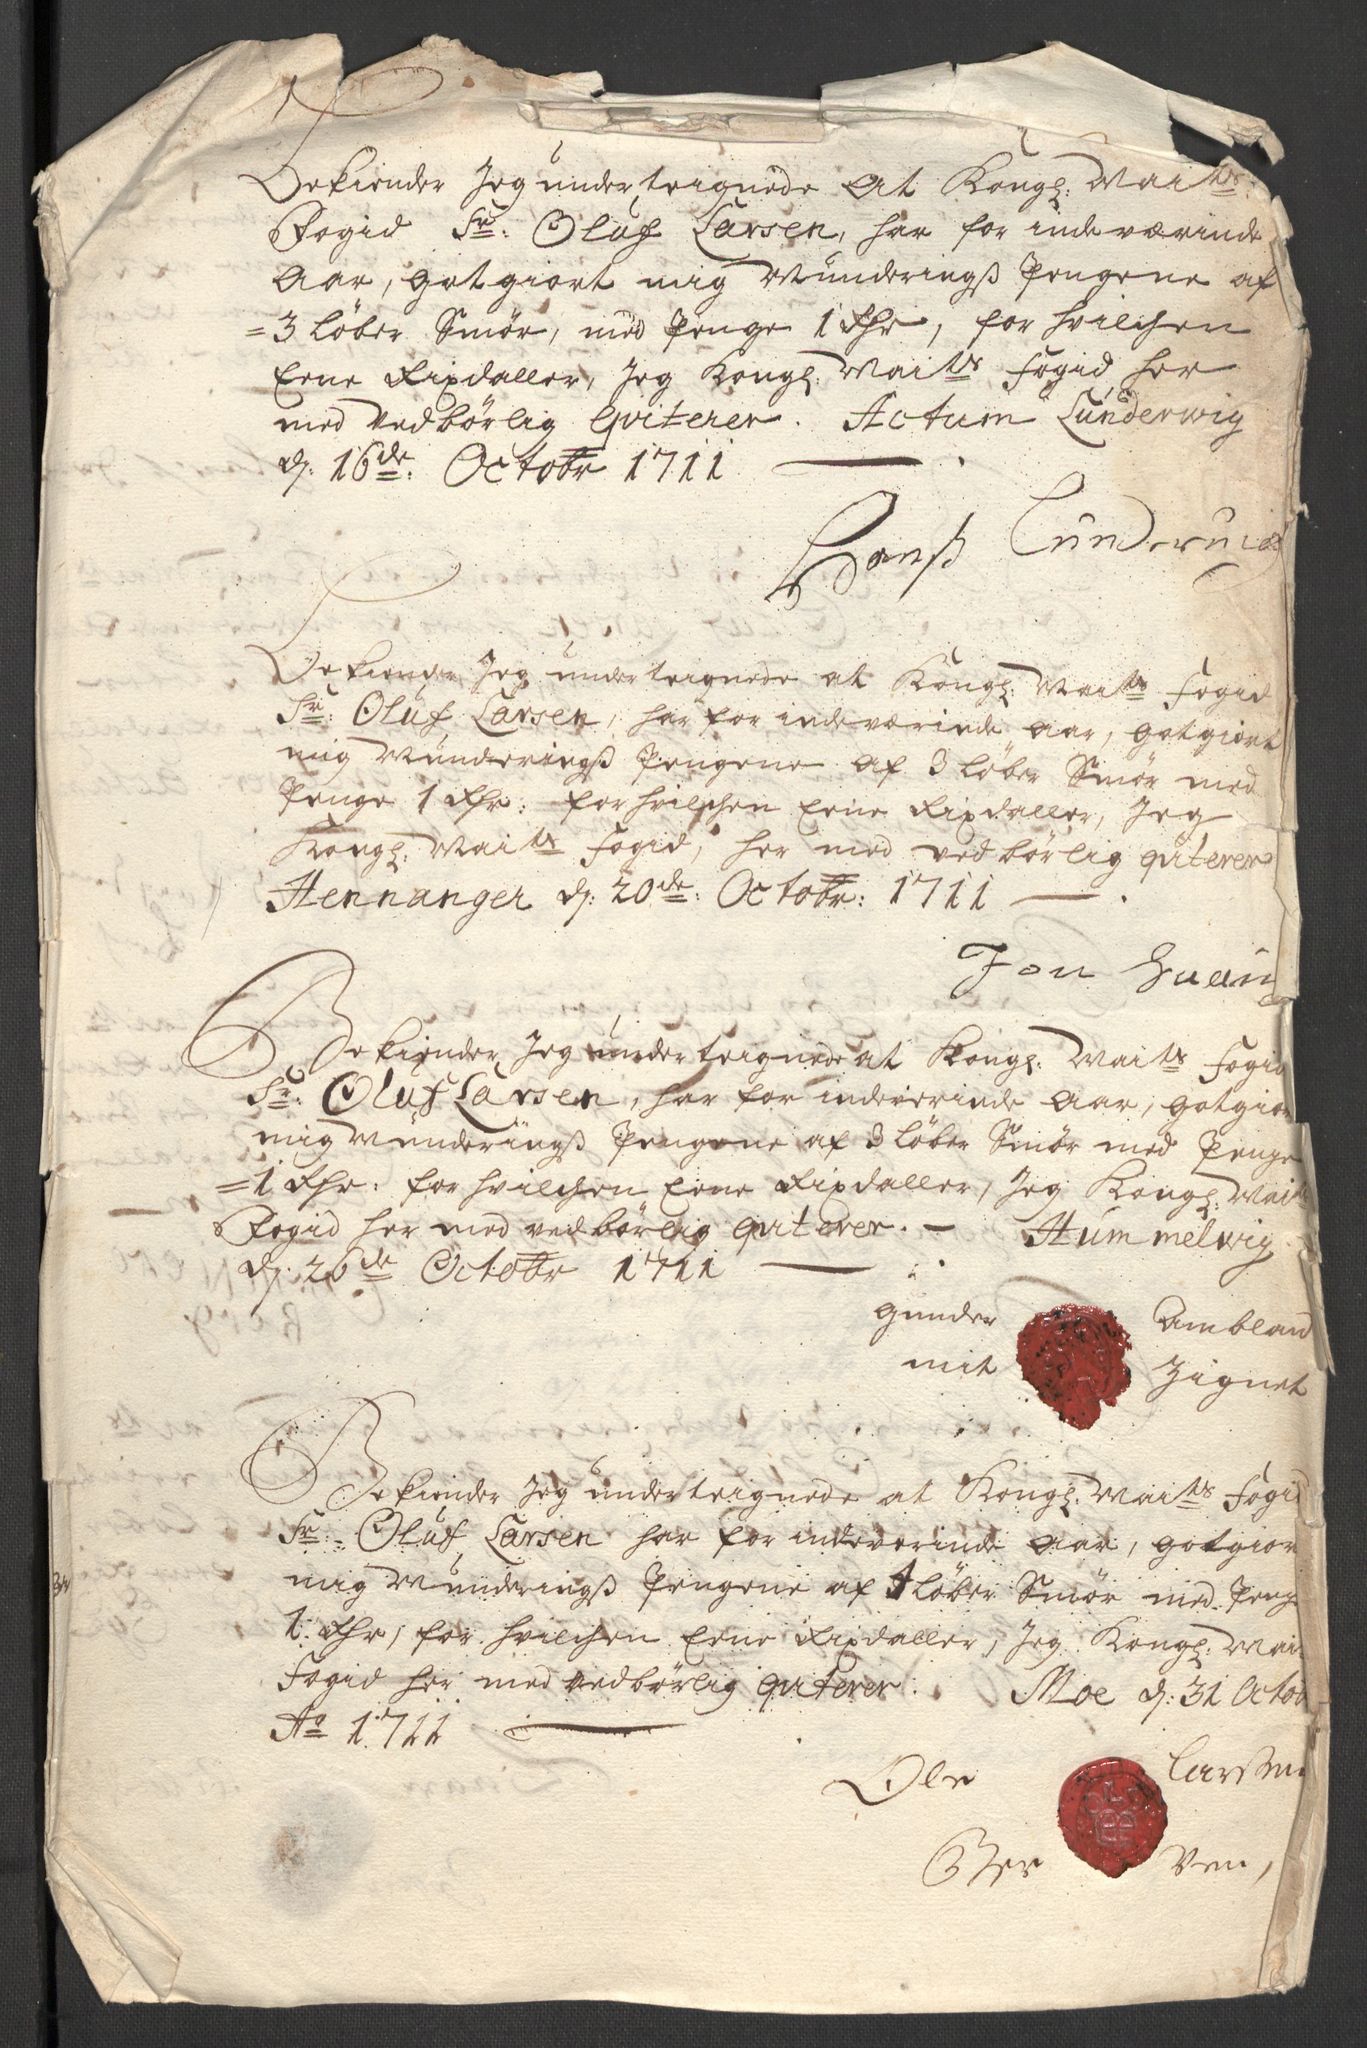 Bekiender Jeg underteignede at Kongl: Maits:
Fogid Sr: Oluf Larsen, har for indeværinde
Aar, gotgiort mig Munderingß Pengene af
=3 Løber Smør, med Penge 1 Rhr, for hvilchen
Eene Rixdaller, Jeg Kongl: Maits Fogid her
med vedbørlig qviterer. Actum Lünderwig
d: 16de: Octobr 1711
Hanß Lünderwig
Bekiender Jeg underteignede at Kongl: Maits Fogid
Sr: Oluf Larsen, har for indeværinde aar, gotgiort
mig Munderingß Pengene af 3 Løber Smør med
Penge 1 Rhr: for hvilchen Eene Rixdaller, Jeg
Kongl: Maits Fogid, her med vedbørlig qviterer
Hennanger d: 20de: Octobr: 1711
Jon
Bekiender Jeg underteignede at Kongl: Maits Fogid
Sr: Oluf Larsen, har for indeverinde aar, gotgior
mig Munderingß Pengene af 3 Løber Smør med Penge
=1 Rhr: for hvilchen Eene Rixdaller, Jeg Kongl: Mait
Fogid her med vedbørlig qviterer. Hummelvig
d: 26de Octobr 1711
gunder Ambland
mit Zignet
Bekiender Jeg underteignede at Kongl: Maits Fogid
Sr: Oluf Larsen har for indeverinde aar, gotgior
mig Munderingß Pengene af Løber Smør med Penge
1 Rhr, for hvilchen Eene Rixdaller, Jeg Kongl: Mai
Fogid her med vedbørlig qviterer. Moe d: 31 Octob
Ao 1711
Ole Larßen